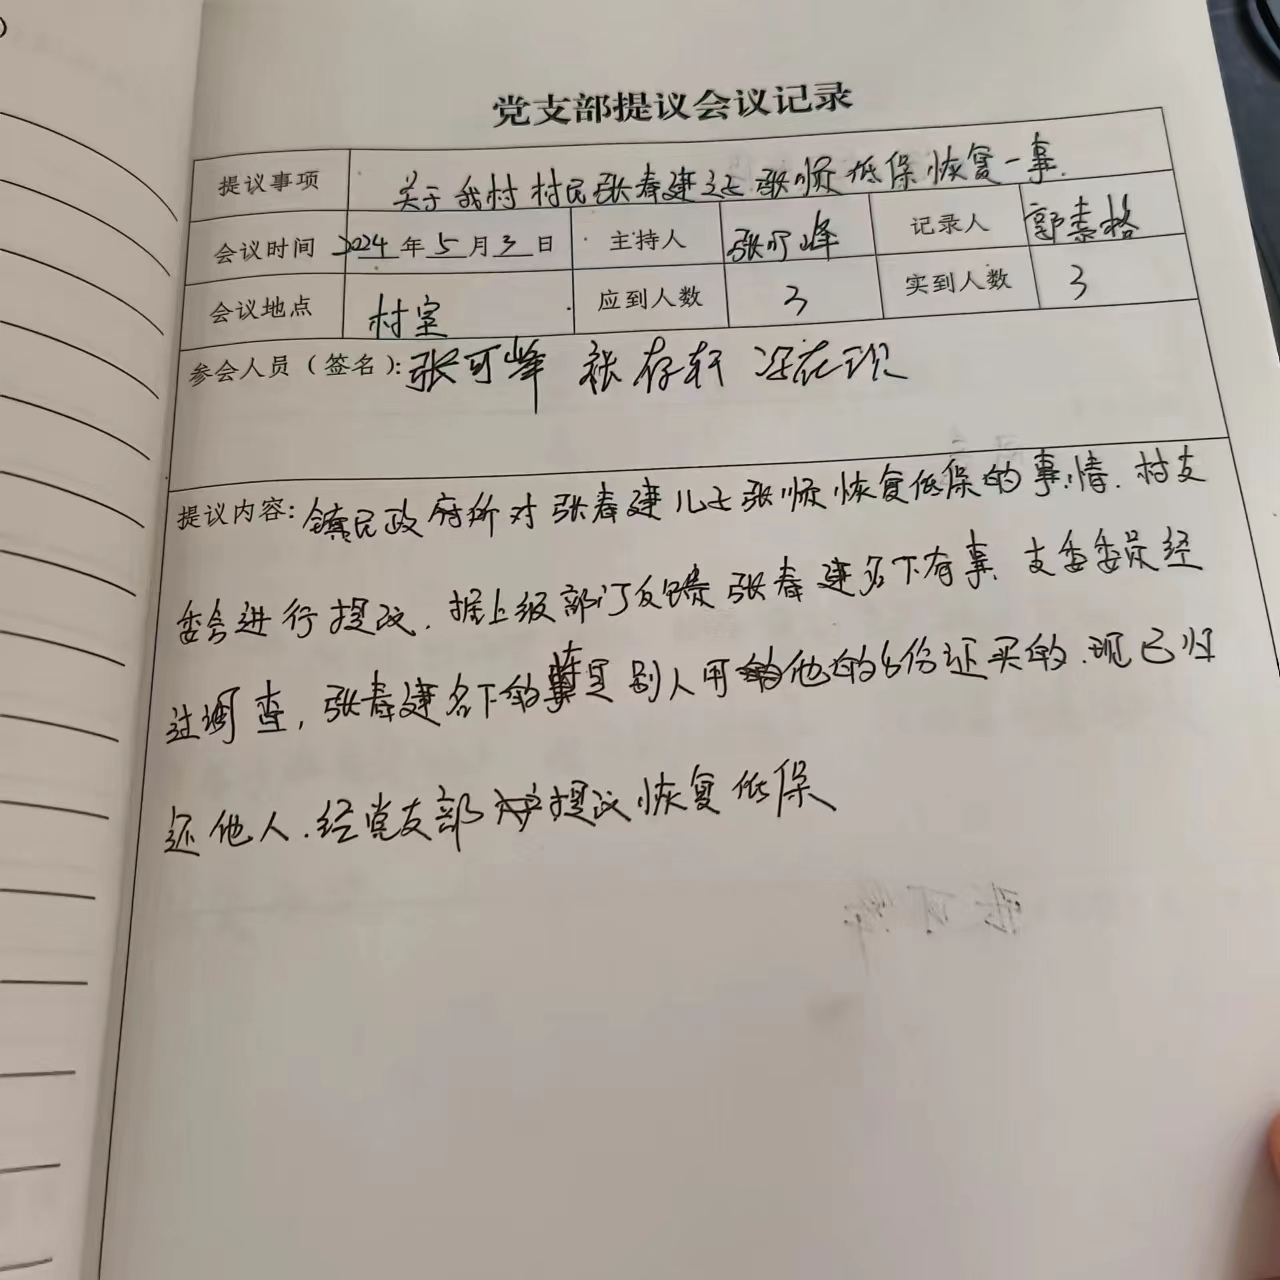 党支部提议会议记录
提议事项 关于我村村民张春建之子张顺低保恢复一事.
会议时间 2024年5月3日 主持人 张可峰 记录人 郭素格
会议地点 村室 应到人数 3 实到人数 3
参会人员(签名): 张可峰 张存轩
提议内容: 镇民政府所对张春建儿子张顺恢复低保的事情. 村支
委会进行提议. 据上级部门反馈张春建名下有车. 支委委员经
过调查, 张春建名下的车是别人用他的身份证买的. 现已归
还他人. 经党支部提议恢复低保